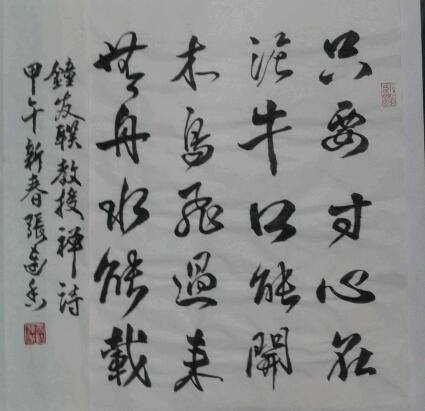 只要寸心在
泥牛口能開
木鳥飛過来
無舟水能載
鐘友联教授禅詩
甲午新春張